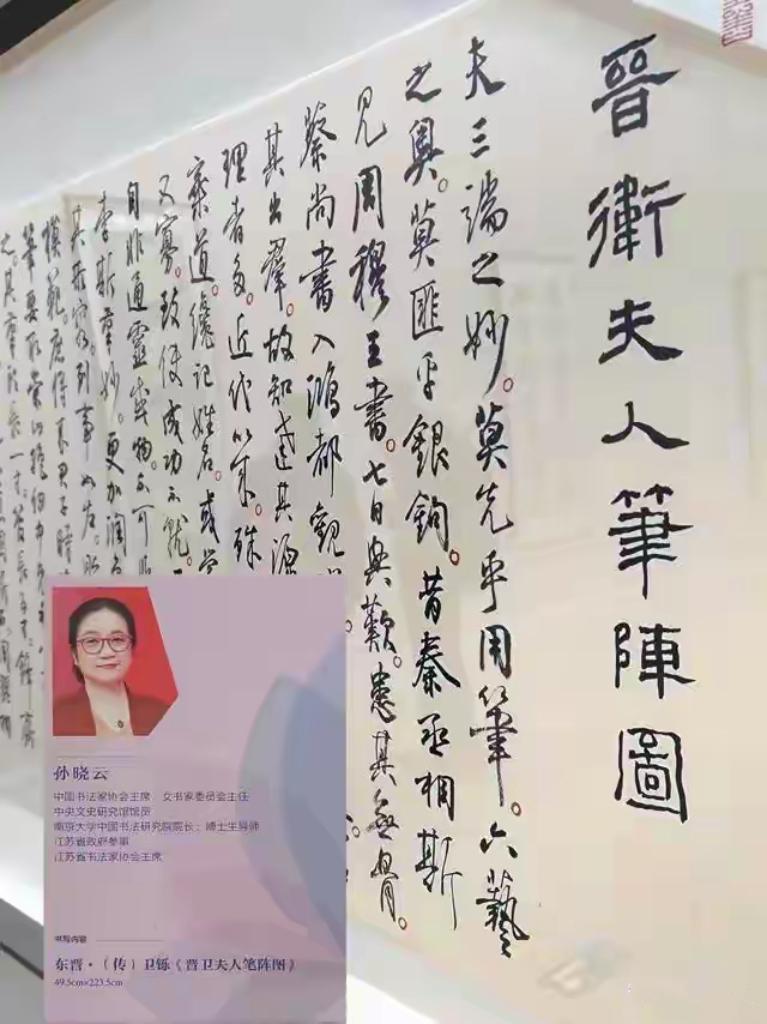 晉衛夫人筆陣圖
夫三端之妙。莫先乎用筆。六藝
之奥。莫匪乎銀鉤。昔秦丞相斯
見周穆王書。七日興歎。患其無骨。
蔡尚書入鴻都觀
其出羣。故知達其源
理者多。近代以来。殊
棄道。纔記姓名。或學
又寡。致使成功不就。
自非通靈感物。不可
李斯筆妙。更加潤
其形容。列事如左。
模範。庶将来君子時
筆要取崇山絶仞中兔
之。其筆頭長一寸。管長五寸。鋒齊
孙晓云
中国书法家协会主席 女书家委员会主任
中央文史研究馆馆员
南京大学中国书法研究院院长；博士生导师
江苏省政府参事
江苏省书法家协会主席
书写内容
东晋·（传）卫铄《晋卫夫人笔阵图》
49.5cm×223.5cm